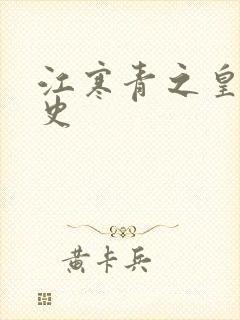 江寒青之皇
史
黄卡兵